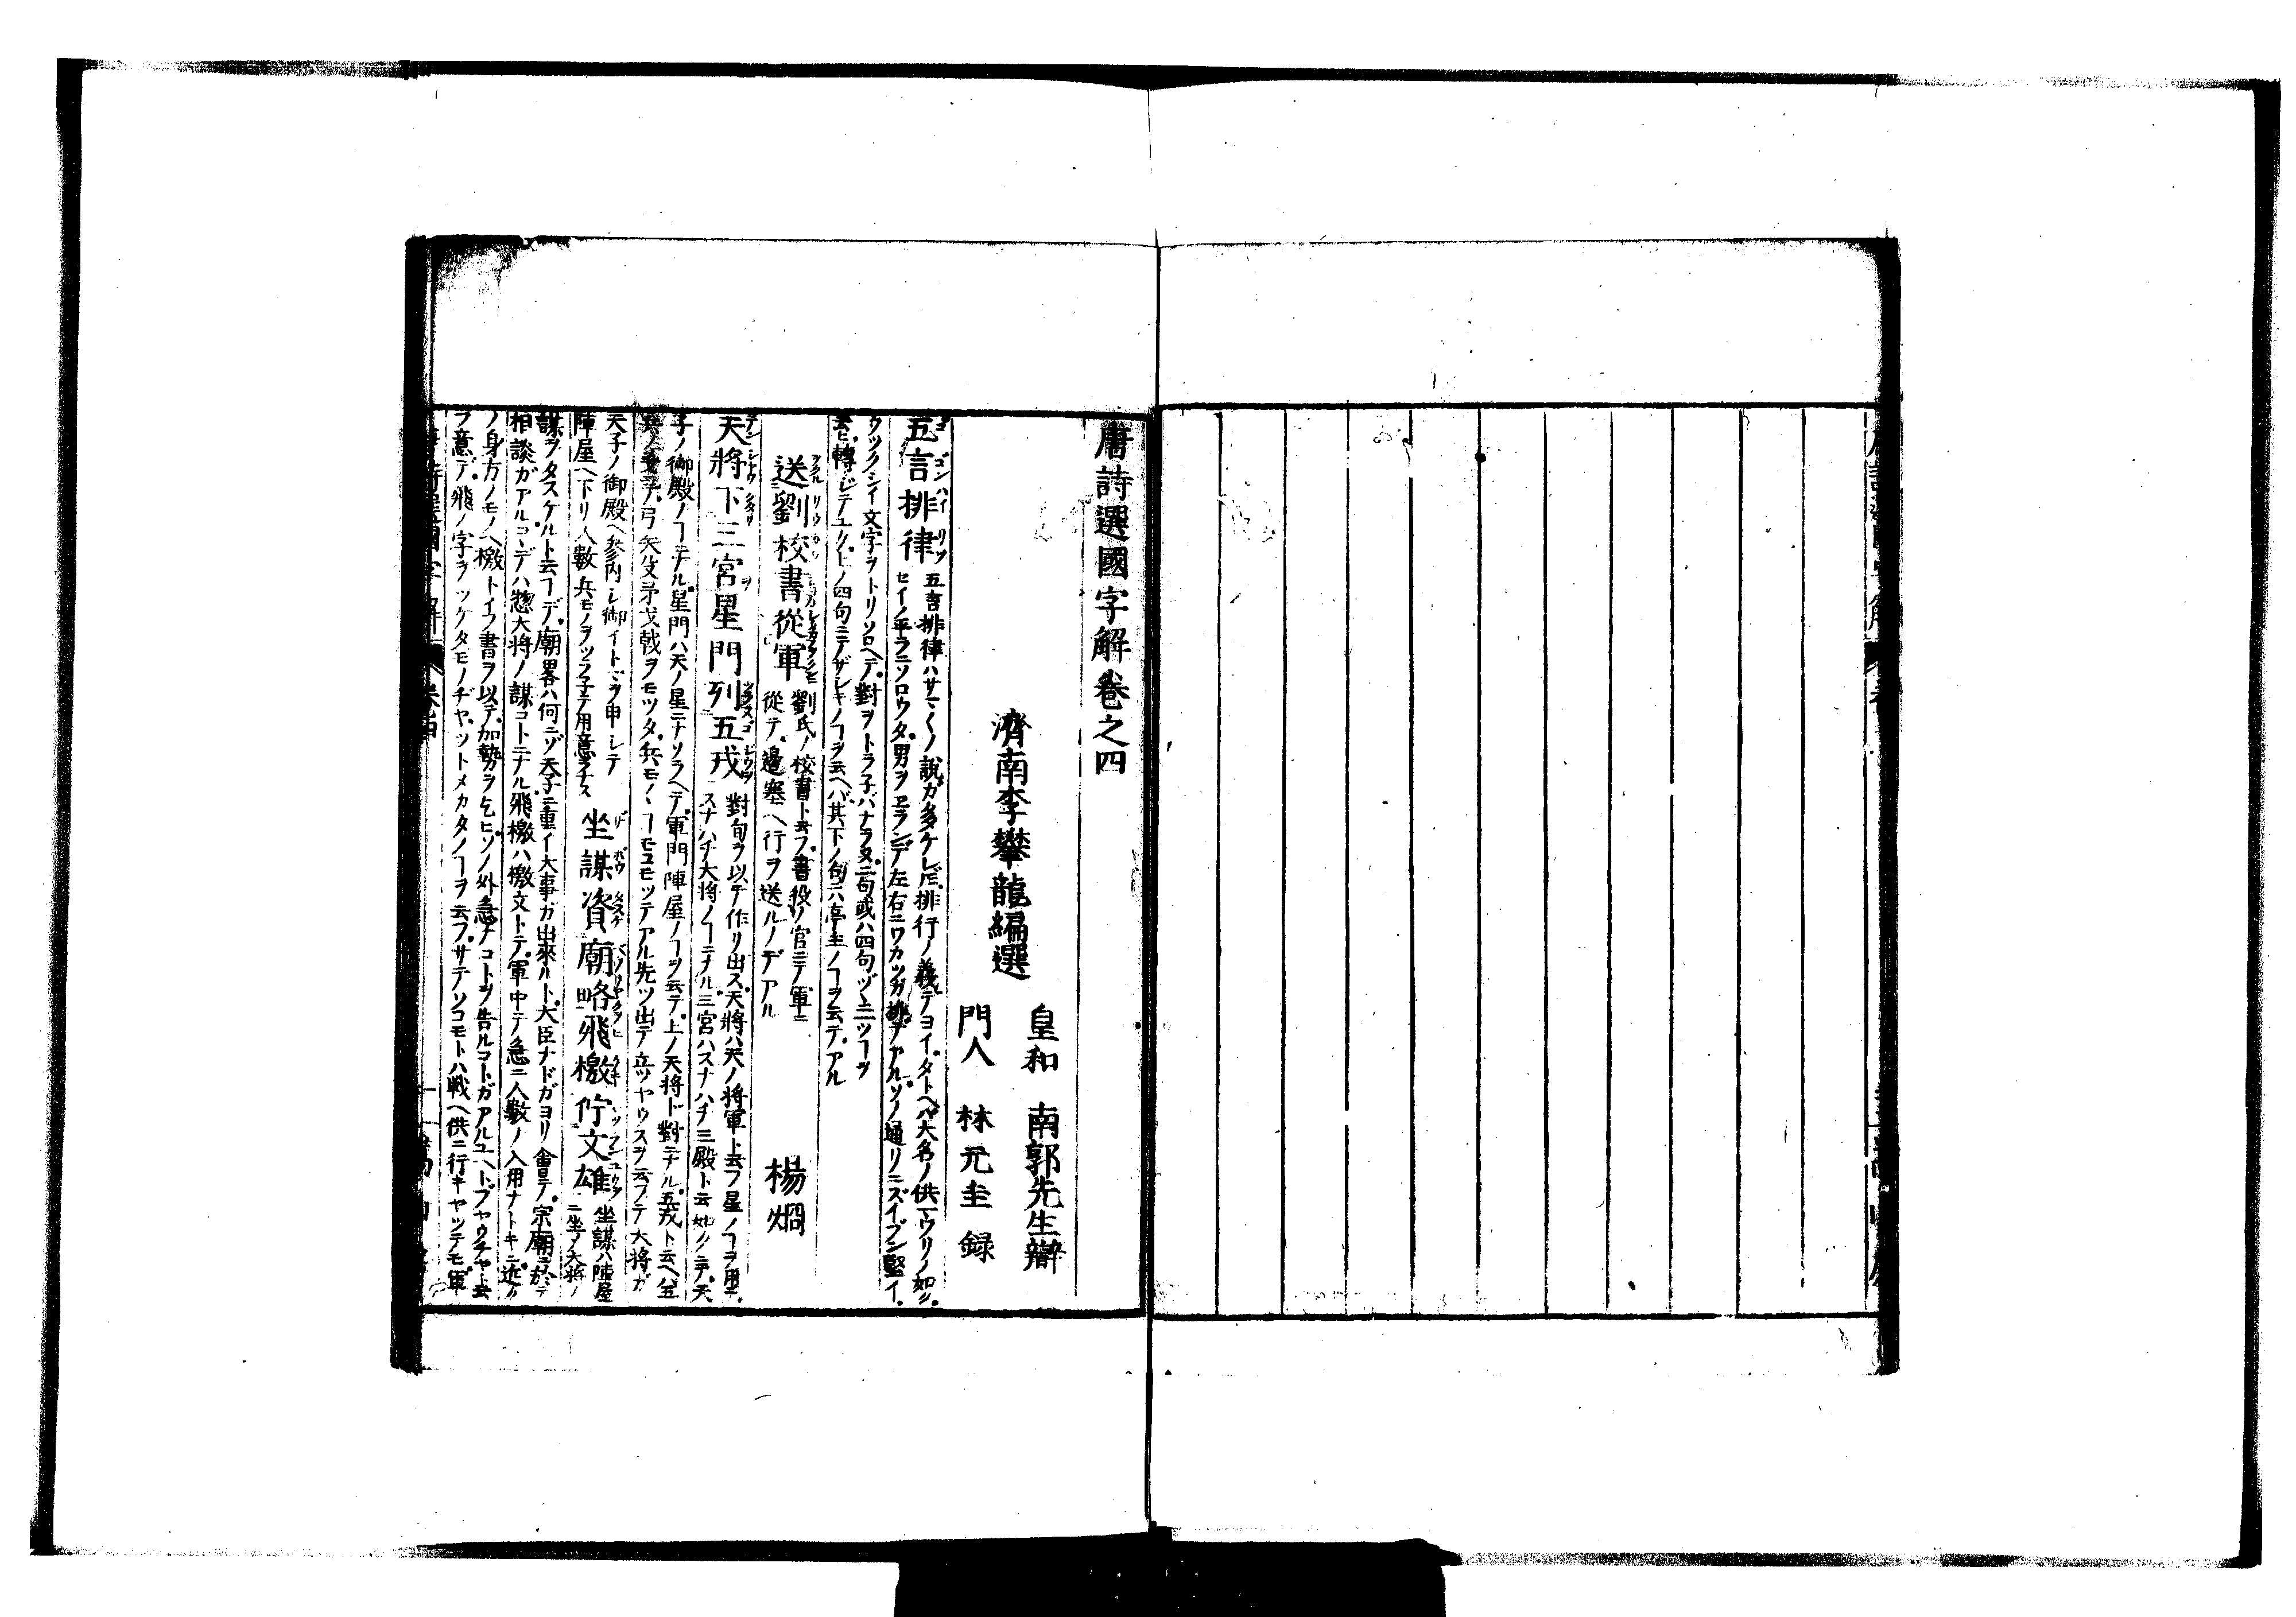 唐詩選國字解卷之四
濟南李攀龍編選
皇和 南郭先生辯
門人 林元圭 録
五言排律
五言排律ハサマ〱ノ説ガ多ケレ𪜈排行ノ義デヨイタトヘバ大名ノ供マワリノ如シ
セイノ平ラニソロウタ男ヲヱランデ左右ニワカツガ排デアルソノ通リニズイブン堅イ
ウツクシイ文字ヲトリソロヘテ對ヲトラ子バナラヌ二句或ハ四句ヅヽ一ツヿヲ
云ヒ轉ジテユク上ノ四句ニテザシキノヿヲ云ヘバ其下ノ句ニハ亭主ノヿヲ云テアル
送劉校書從軍
劉氏ノ校書ト云フ書役ノ官ニテ軍ニ
從テ邊塞ヘ行ヲ送ルノデアル
楊烱
天將下三宮星門列五戎
對句ヲ以テ作リ出ス天將ハ天ノ將軍ト云フ星ノヿヲ用テ
スナハチ大將ノヿニナル三宮ハスナハチ三殿ト云
子ノ御殿ノヿニナル星門ハ天ノ星ニナソラヘテ軍門陣屋ノヿヲ云テ上ノ天將ト對ニナル五戎ト云ヘバ五
弓矢殳矛戈戟ヲモツタ兵モノヽヿモコモツテアル先ツ出デ立ツヤウスヲ云フテ大將ガ
天子ノ御殿ヘ參内シ御イトマヲ申シテ
陣屋ヘ下リ人數兵モノヲツラ子テ用意ヲナス
坐謀資廟略飛檄佇文雄
坐謀ハ陣屋
ニ坐ノ大將ノ
謀ヲタスケルト云ヿデ廟畧ハ何ニゾ天子ニ重イ大事ガ出來ルト大臣ナドガヨリ會テ宗廟ニ於テ
相談ガアルコヽデハ惣大將ノ謀コトニナル飛檄ハ檄文トテ軍中デ急ニ人數ノ入用ナトキニ近ク
ノ身方ノモノヘ檄トイフ書ヲ以テ加勢ヲ乞ヒソノ外急ナコトヲ告ルコトガアルユヘトブヤウヂヤト云
フ意デ飛ノ字ヲツケタモノヂヤツトメカタノヿヲ云フサテソコモトハ戰ヘ供ニ行キヤツテモ軍